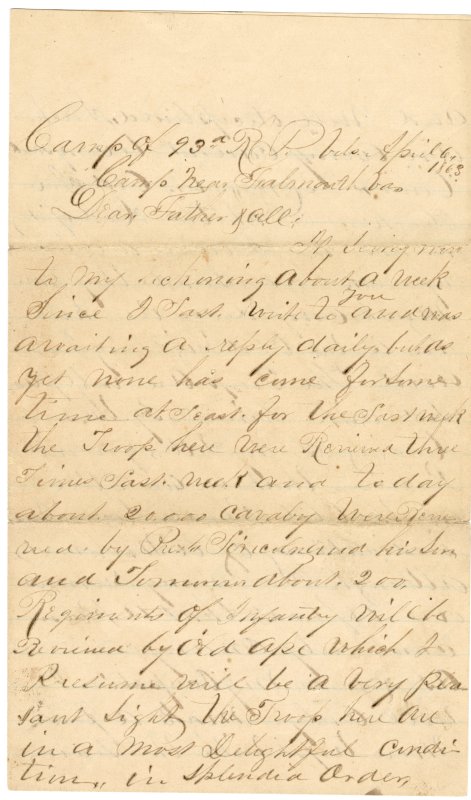 Camp of 93d R. P. Vols. April 6th 1863
Camp Near Falmouth Va
Dear Father & all:
It being now
to my reckoning about a week
Since I Last write to you and was
awaiting a reply daily but as
yet none has come for Some
time at Least. for the Last week
the Troop here were Reviewed three
Times Last week and to day
about 20,000 cavalry were Revie
wed by Prest Lincoln and his Son
and Tomorrow about 200,
Regiments of Infantry will be
Reviewed by Old Abe which I
Presume will be a very plea
sant Sight, the Troop here are
in a most Delightful condi
tion,, in Splendid Order,